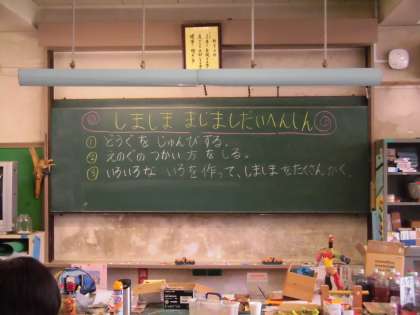 しましま まじましだいへんしん
① どうぐを じゅんびする。
② えのぐの つかい方 を しる。
③ いろいろな いろを作って、しましま をたくさん かく。